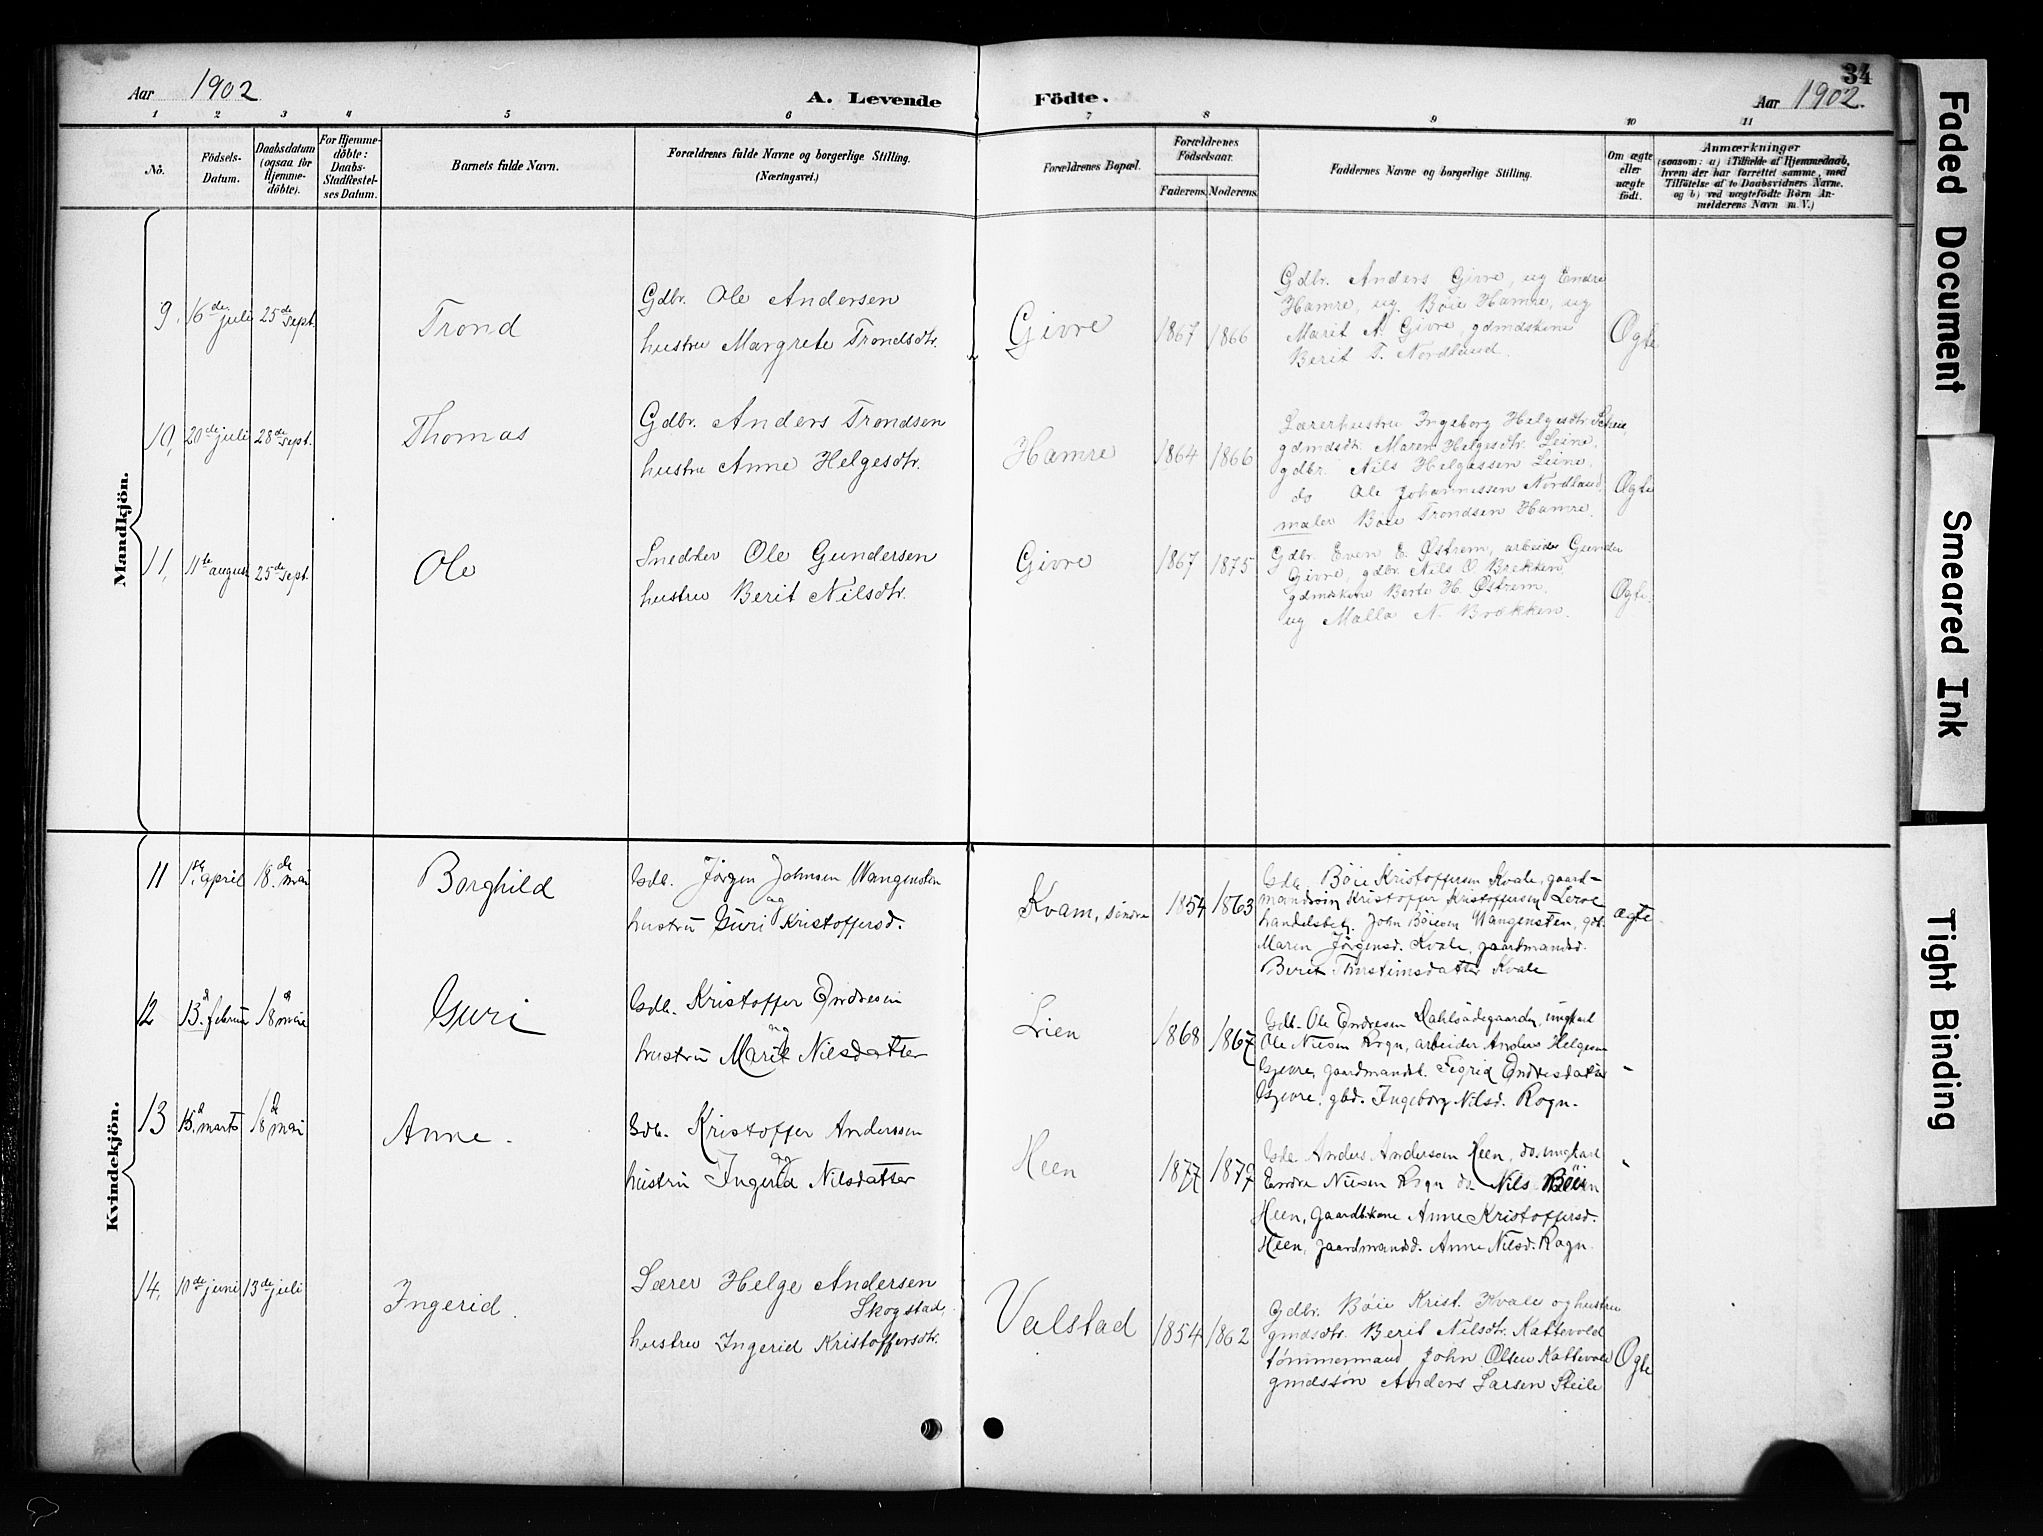 34
Aar 1902
A. Levende Födte.
Aar 1902.
1 2 3 4 5 6 7 8 9 10 11
No.
Födsels-
Datum.
Daabsdatum
(ogsaa for
Hjemme-
döbte).
For Hjemme-
döbte:
Daabs-
Stadfæstel-
ses Datum.
Barnets fulde Navn.
Forældrenes fulde Navne og borgerlige Stilling.
(Næringsvei.)
Forældrenes Bopæl.
Forældrenes
Födselsaar.
Faderens. Moderens.
Faddernes Navne og borgerlige Stilling.
Om ægte
eller
uægte
födt.
Anmærkninger
(saasom: a) i Tilfælde af Hjemmedaab,
hvem der har forrettet samme, med
Tilföielse af to Daabsvidners Navne.
og b) ved uægtefödte Börn An-
melderens Navn m. V.)
Mandkjön.
9. 16de juli 25de sept. Trond
Gdbr. Ole Andersen
hustru Margrete Trondsdtr.
Givre 1867 1866
Gdbr. Anders Givre, ug Endre
Hamre, ug. Bøie Hamre, ug
Marit A. Givre, gdmdskone
Berit T. Nordland.
Ægte
10, 20de juli 28de sept. Thomas
Gdbr. Anders Trondsen
hustru Anne Helgesdtr.
Hamre 1864 1866
Lærerhustru Ingeborg Helgesdtr
gdmdsdtr. Maren Helgesdtr. Leine,
gdbr. Nils Helgessen Leine,
do Ole Johannessen Nordland,
maler Bøie Trondsen Hamre.
Ægte
11, 11te august 25de sept. Ole
Snedker Ole Gundersen
hustru Berit Nilsdtr.
Givre 1867 1875
Gdbr. Even E. Østrem, arbeider Gunder
Givre, gdbr. Nils O Brekken,
gdmskone Berte H. Østrem,
ug Malla N. Brækken.
Ægte.
Kvindekjön.
11 1ste april 18de mai Borghild
Gdb. Jørgen Johnsen Wangensten
og
hustru Guri Kristoffersd.
Kvam, søndre 1854 1863
Gdb. Bøie Kristoffersen Kvale, gaard-
mandssøn Kristoffer Kristoffersen
handelsbetj. John Bøiesen Wangensten,
Maren Jørgensd. Kvale, gaardmandsd.
Berit Thosteinsdatter Kvale
ægte
12 13.d februar 18d mai Guri
Gdb. Kristoffer Endresen
og
hustru Marit Nilsdatter
Lien 1868 1867
Gdb. Ole Endresen ungkarl
Ole Nilsen Rogn, arbeider Anders Helgesen
Gjevre, gaardmandsk. Sigrid Endresdatter
Gjevre, gbd. Ingeborg Nilsd. Rogn.
"
13 15.d marts 18d mai Anne.
Gdb. Kristoffer Anderssen
og
hustru Ingerid Nilsdatter
Heen 1877 1879
Gdb. Anders Anderssen Heen, do. ungkarl
Endre Nilsen Rogn do Nils
Heen, gaardbkone Anne Kristoffersd.
Heen, gaardmandsd. Anne Nilsd. Rogn.
"
14. 10de juni 13de juli Ingerid.
Lærer Helge Andersen
Skogstad,
hustru Ingerid Kristoffersdtr.
Valstad 1854 1862
Gdbr. Bøie Krist. Kvale og hustru
gmdsdtr. Berit Nilsdtr. Kattevold
tømmermand John Olsen Kattevold
gmdssøn Anders Larsen Steile
Ægte
Faded Document
Smeared Ink
Tight Binding